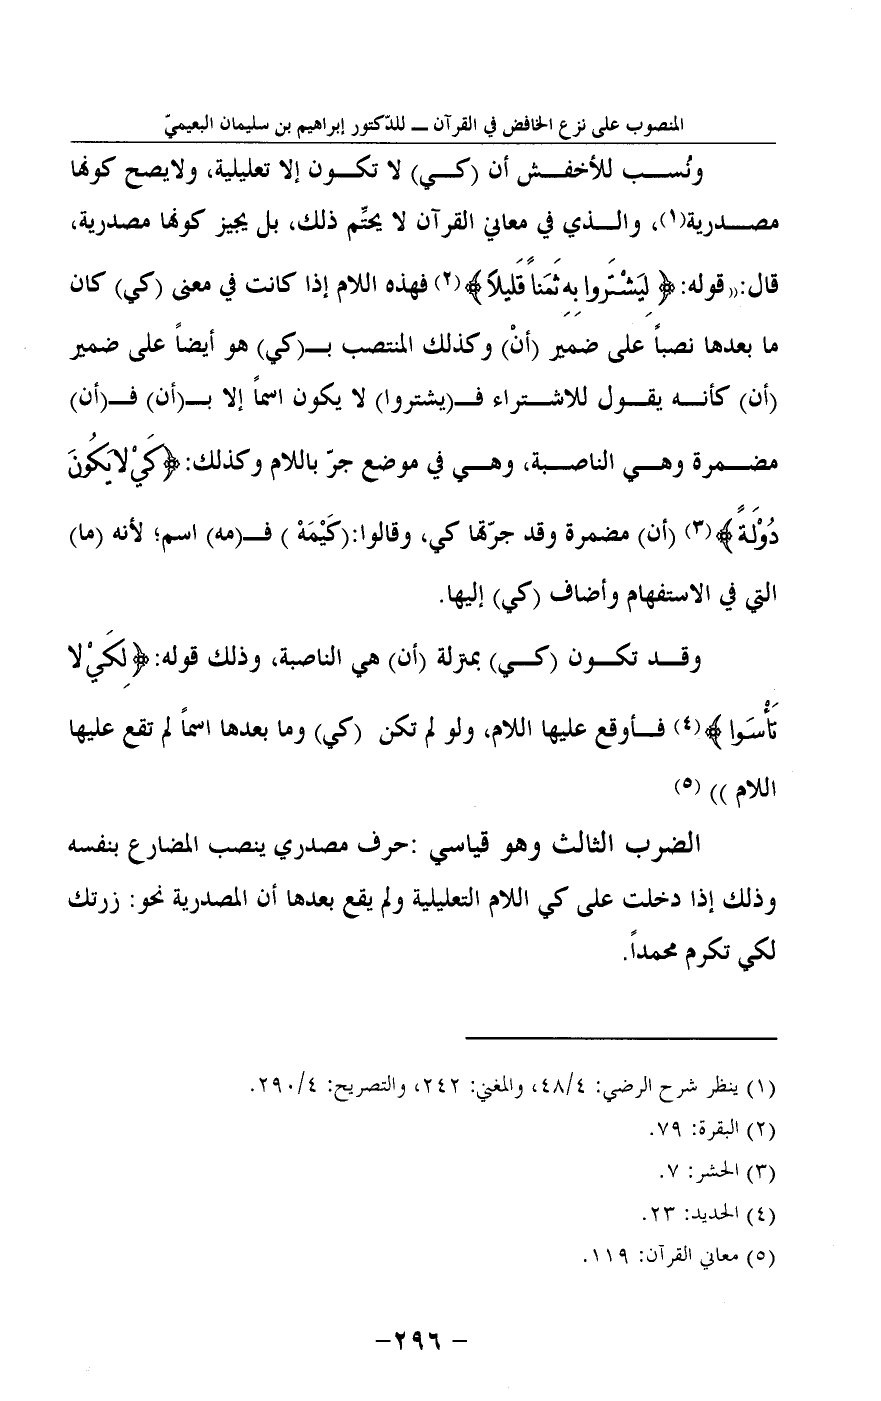 المنصوب على نزع الخافض في القرآن – للدّكتور إبراهيم بن سليمان البعيميّ
ونُسب للأخفش أن (كي) لا تكون إلا تعليلية، ولايصح كونها
مصدرية(١)، والذي في معاني القرآن لا يحتِّم ذلك، بل يجيز كونها مصدرية،
قال:((قوله: ﴿ لِيَشْتَرُوا بِهِ ثَمَناً قَلِيلاً﴾(٢) فهذه اللام إذا كانت في معنى (كي) كان
ما بعدها نصباً على ضمير (أنْ) وكذلك المنتصب بـ(كي) هو أيضاً على ضمير
(أن) كأنه يقول للاشتراء فـ(يشتروا) لا يكون اسماً إلا بـ(أن) فـ(أن)
مضمرة وهي الناصبة، وهي في موضع جرّ باللام وكذلك: ﴿كَيْ لا يَكُونَ
دُوْلَةً﴾(٣) (أن) مضمرة وقد جرّتها كي، وقالوا:(كَيْمَهْ ) فـ(مه) اسم؛ لأنه (ما)
التي في الاستفهام وأضاف (كي) إليها.
وقد تكون (كي) بمنزلة (أن) هي الناصبة، وذلك قوله: ﴿لِكَيْ لا
تَأْسَوا ﴾(٤) فأوقع عليها اللام، ولو لم تكن (كي) وما بعدها اسماً لم تقع عليها
اللام )) (٥)
الضرب الثالث وهو قياسي :حرف مصدري ينصب المضارع بنفسه
وذلك إذا دخلت على كي اللام التعليلية ولم يقع بعدها أن المصدرية نحو: زرتك
لكي تكرم محمداً.
(١) ينظر شرح الرضي: ٤٨/٤، والمغني: ٢٤٢، والتصريح: ٢٩٠/٤.
(٢) البقرة: ٧٩.
(٣) الحشر: ٧.
(٤) الحديد: ٢٣.
(٥) معاني القرآن: ١١٩.
- ٢٩٦-